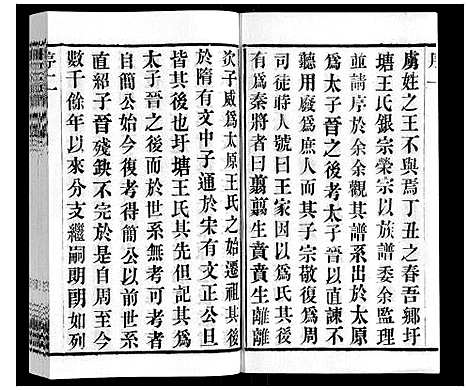 虞姓之王不與焉丁丑之春吾鄉圩
塘王氏銀宗榮宗以族譜委余監理
並請序於余余觀其譜系出於太原
爲太子晉之後考太子晉以直諫不
聽用廢爲庶人而其子宗敬復爲周
司徒時人號曰王家因以爲氏其後
有爲秦將者曰翦翦生賁賁生離離
次子威爲太原王氏之始遷祖其後
於隋有文中子通於宋有文正公旦
皆其後也圩塘王氏其先但記其爲
太子晉之後而於世系無考可然也
自簡公始今復考得簡公以前世系
直紹子晉殘鈌不完於是自周至今
數千餘年以來分支繼嗣朗朗如列
序二